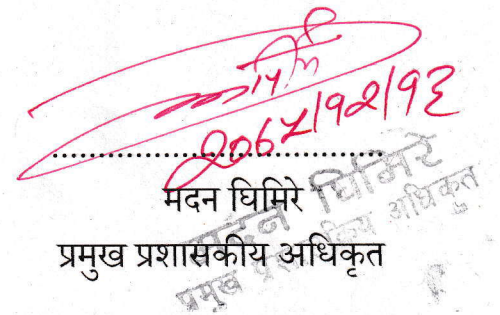 २०७५।१२।१३
मदन घिमिरे
प्रमुख प्रशासकीय अधिकृत
मदन घिमिरे
प्रमुख प्रशासकीय अधिकृत